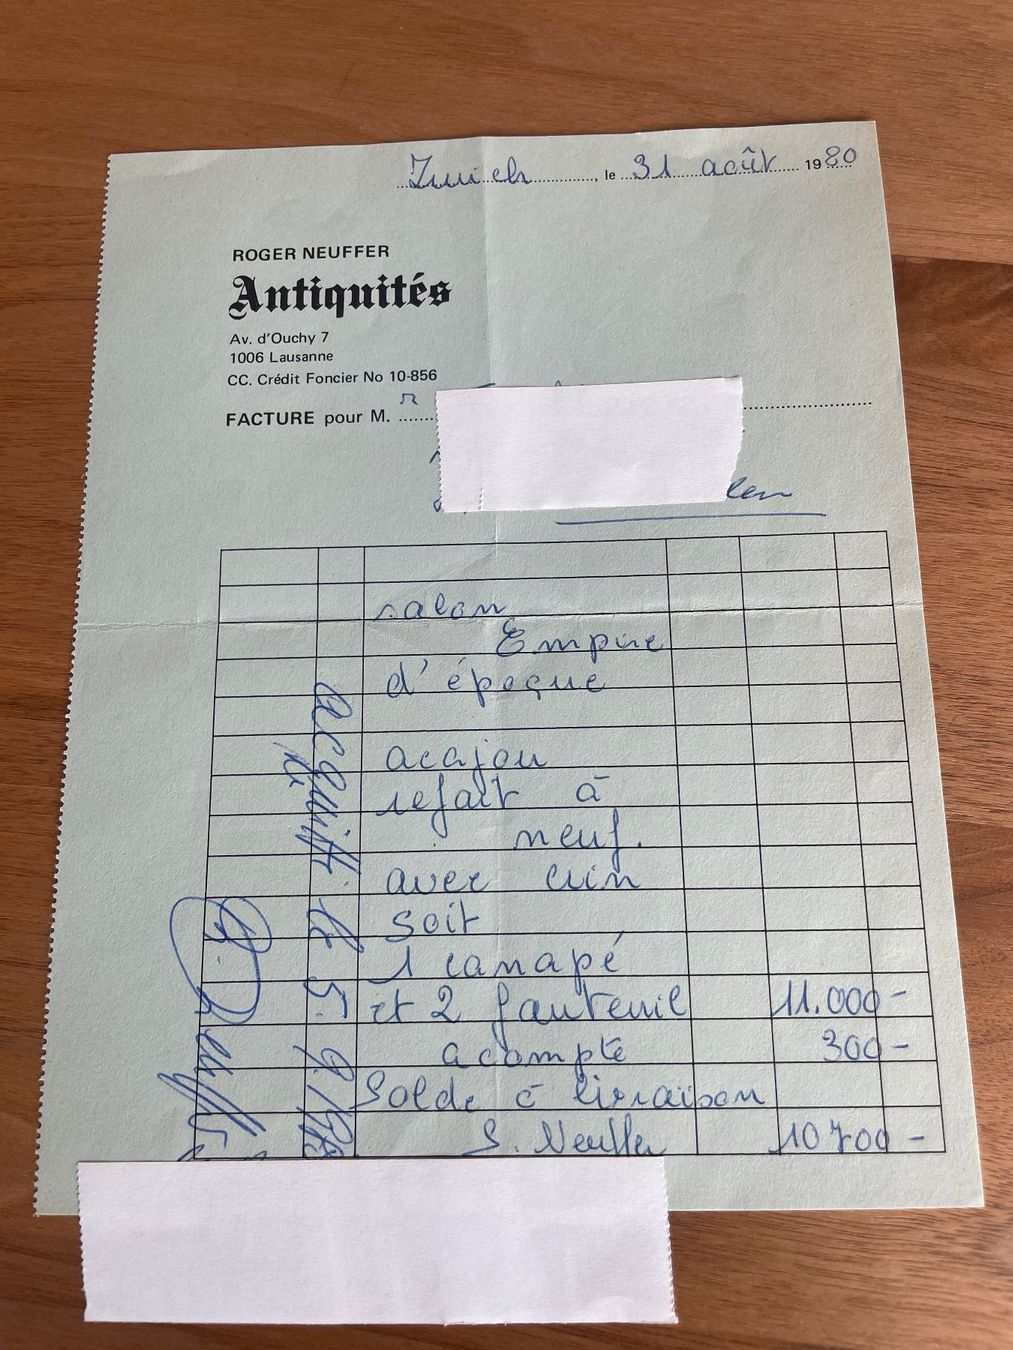 Zurich, le 31 août 1980
ROGER NEUFFER
Antiquités
Av. d'Ouchy 7
1006 Lausanne
CC. Crédit Foncier No 10-856
FACTURE pour M.
salon
Empire
d'époque
acajou
refait à
neuf.
avec crin
soit
1 canapé
et 2 fauteuil 11.000-
acompte 300-
Solde à livraison
S. Neuffer 10700-
acquitté le 5. 9.